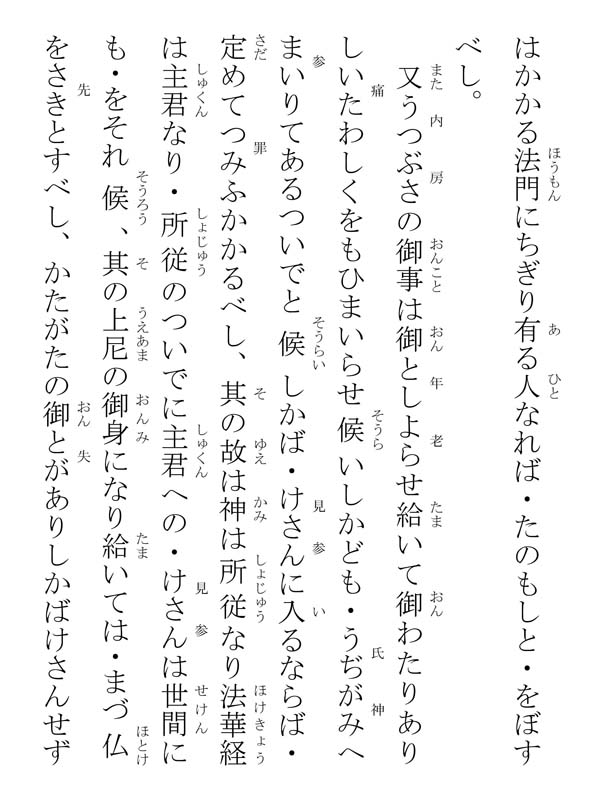 はかかる法門にちぎり有る人なれば・たのもしと・をぼす
べし。
又うつぶさの御事は御としよらせ給いて御わたりあり
しいたわしくをもひまいらせ候いしかども・うぢがみへ
まいりてあるついでと候しかば・けさんに入るならば・
定めてつみふかかるべし、其の故は神は所従なり法華経
は主君なり・所従のついでに主君への・けさんは世間に
も・をそれ候、其の上尼の御身になり給いては・まづ仏
をさきとすべし、かたがたの御とがありしかばけさんせず